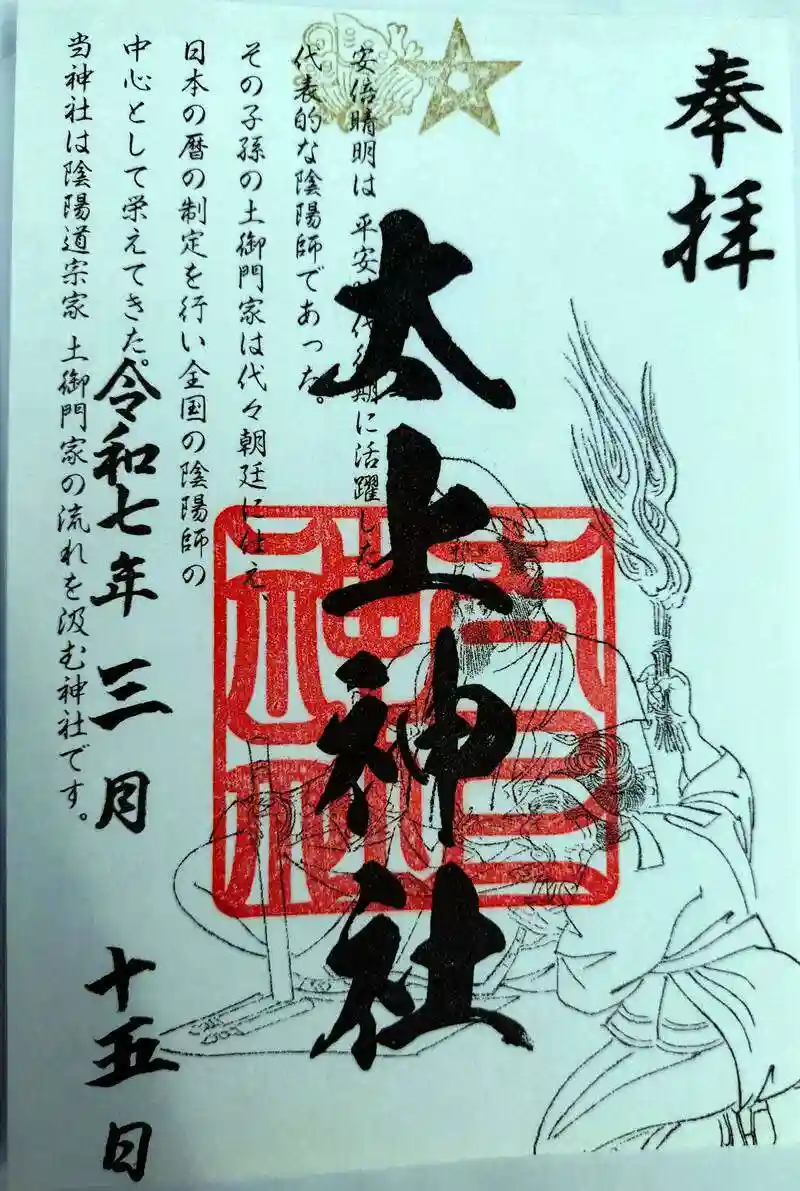 奉拝
太上神社
安倍晴明は 平安時代後期に活躍した
代表的な陰陽師であった。
その子孫の土御門家は代々朝廷に仕え、
日本の暦の制定を行い全国の陰陽師の
中心として栄えてきた。
当神社は陰陽道宗家 土御門家の流れを汲む神社です。
令和七年 三月 十五日